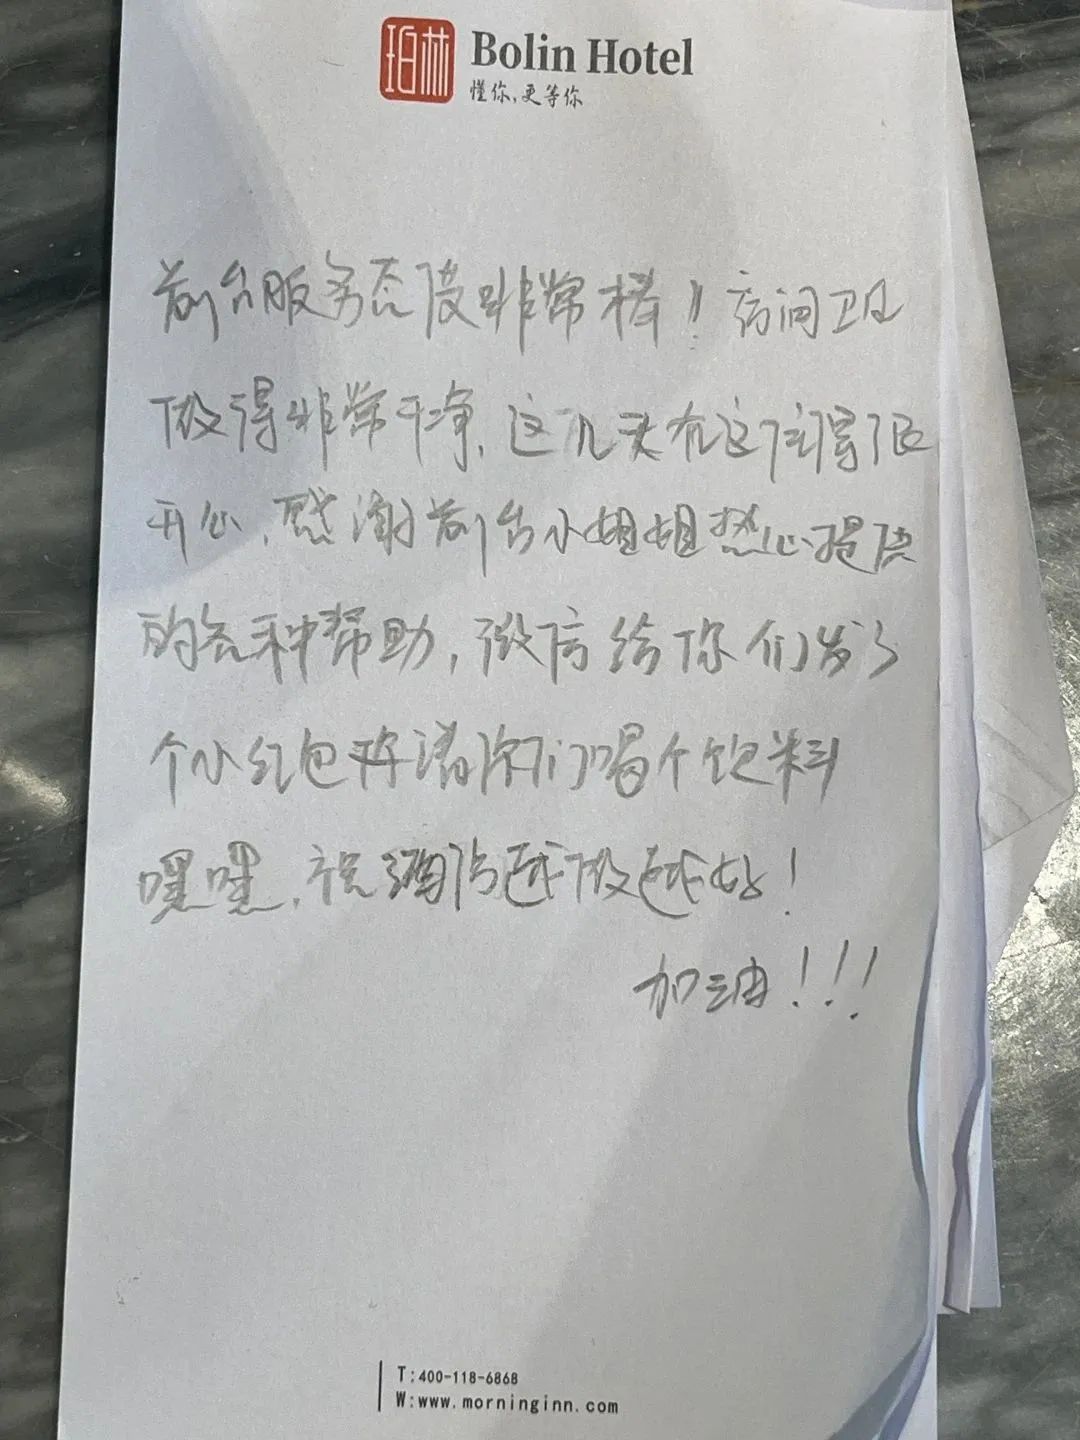 珀林
Bolin Hotel
懂你,更等你
前台服务态度非常棒!房间卫生
做得非常干净,这几天在这住得很
开心,感谢前台小姐姐热心提供
的各种帮助,微信给你们发了
个小红包 请你们喝个饮料
嘿嘿,祝酒店越做越好!
加油!!!
T:400-118-6868
W:www.morninginn.com